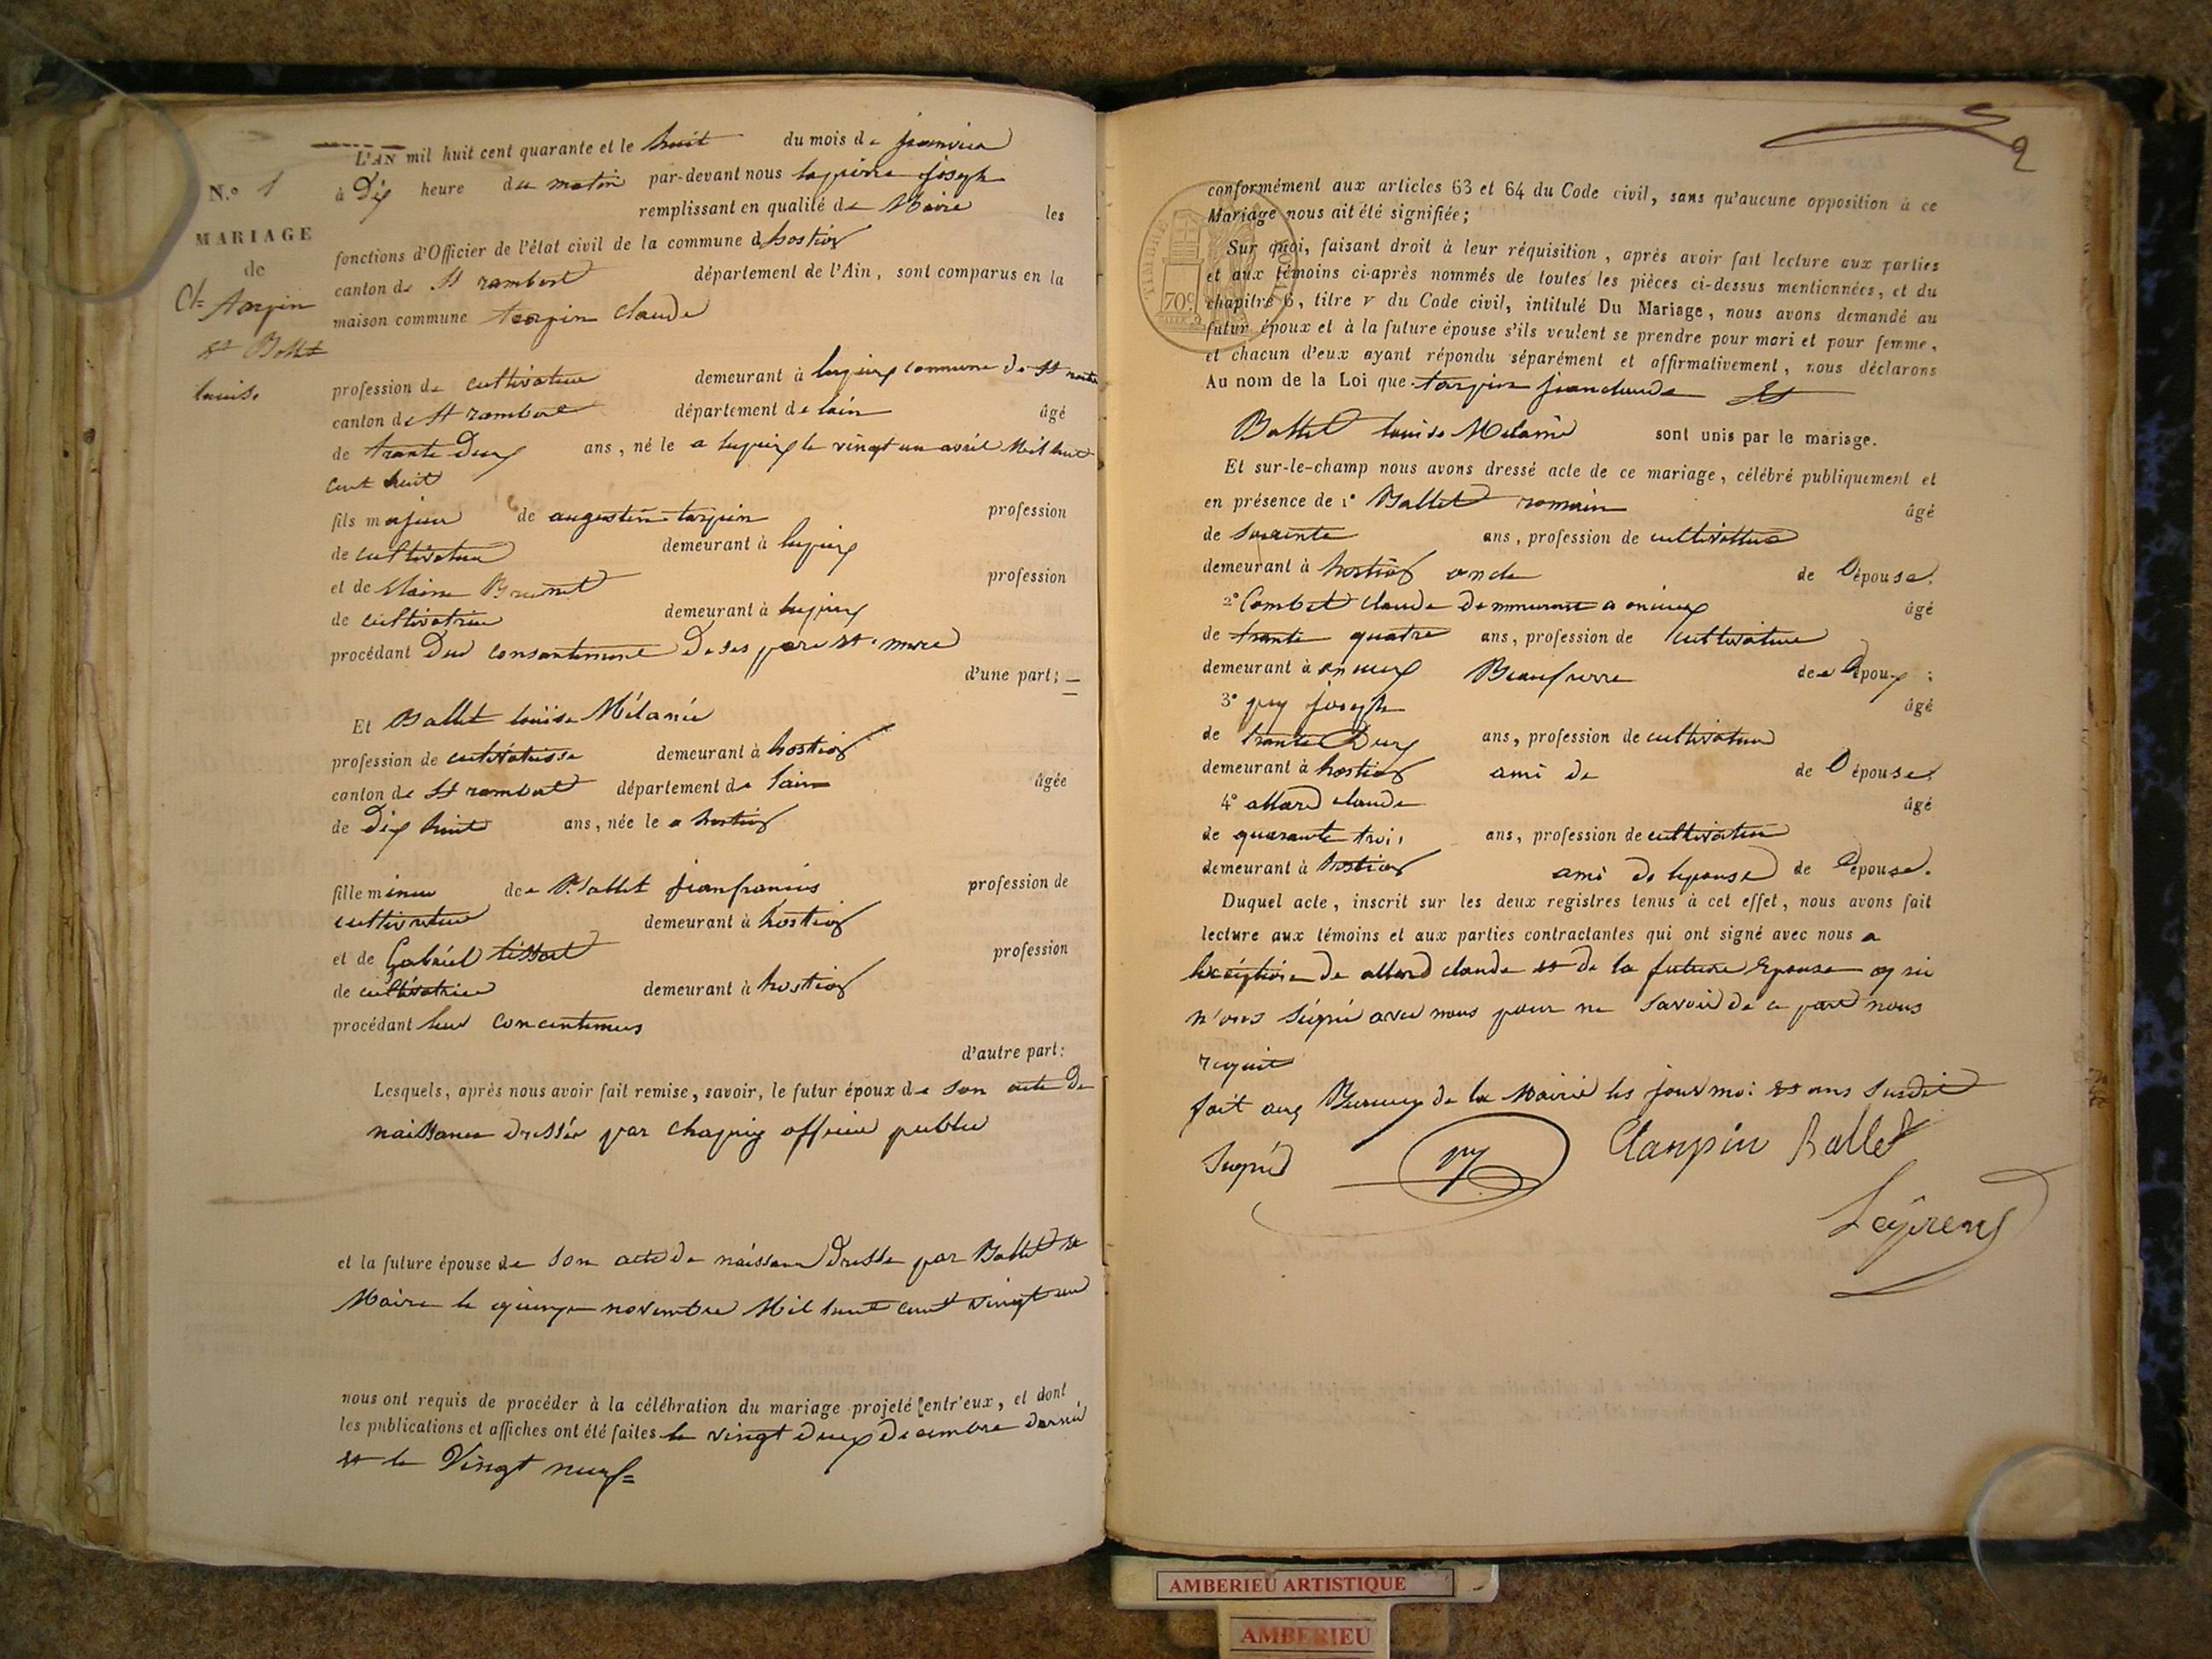 L'AN mil huit cent quarante et le huit du mois de janvier
N.º 1
à Dix heure du matin par-devant nous lapierre joseph
remplissant en qualité de Maire les
MARIAGE
fonctions d'Officier de l'état civil de la commune d hostiax
de
canton de St rambert département de l'Ain, sont comparus en la
Cl= Tarpin
maison commune tarpin Claude
et Ballet
louise
profession de cultivateur demeurant à commune de St
canton de St rambert département de lain âgé
de trante Deux ans, né le a le vingt un avril Mil huit
cent huit
fils majeur de augustin tarpin profession
de cultivateur demeurant à
et de Brunet profession
de cultivatrice demeurant à
procédant Du consantement De ses pere et mere
d'une part;
Et Ballet louise Mélanie
profession de cultivatrisse demeurant à hostiax
canton de St rambert département de lain âgée
de Dix huit ans, née le a hostiax
fille mineur de Ballet jeanfrancois profession de
cultivateur demeurant à hostiax
et de Gabriel tissot profession
de cultivatrice demeurant à hostiax
procédant leur
d'autre part:
Lesquels, après nous avoir fait remise, savoir, le futur époux de son acte de
naissance dressée par officier public
et la future épouse de son acte de naissance Dressé par Ballet
Maire le quinze novembre Mil huit cent vingt un
nous ont requis de procéder à la célébration du mariage projeté entr'eux, et dont
les publications et affiches ont été faites le vingt deux decembre dernié
et le Vingt neuf=
2
conformément aux articles 63 et 64 du Code civil, sans qu'aucune opposition à ce
Mariage nous ait été signifiée;
Sur quoi, faisant droit à leur réquisition, après avoir fait lecture aux parties
et aux témoins ci-après nommés de toutes les pièces ci-dessus mentionnées, et du
70c
chapitre 6, titre v du Code civil, intitulé Du Mariage, nous avons demandé au
futur époux et à la future épouse s'ils veulent se prendre pour mari et pour femme,
et chacun d'eux ayant répondu séparément et affirmativement, nous déclarons
Au nom de la Loi que tarpin jeanclaude Et
Ballet louise Melanie sont unis par le mariage.
Et sur-le-champ nous avons dressé acte de ce mariage, célébré publiquement et
en présence de 1º Ballet romain âgé
de ans, profession de cultivateur
demeurant à hostiax oncle de l'épouse.
2º Combet claude demmurant a âgé
de trante quatre ans, profession de cultivateur
demeurant à Beaufrerre de l'époux ;
3º joseph âgé
de trante Deux ans, profession de cultivateur
demeurant à hostiax ami de de l'épouse,
4º allard claude âgé
de quarante trois ans, profession de cultivateur
demeurant à hostiax ami de lepouse de l'épouse.
Duquel acte, inscrit sur les deux registres tenus à cet effet, nous avons fait
lecture aux témoins et aux parties contractantes qui ont signé avec nous a
de allard claude et de la future Epouse
n'ons signé avec nous pour ne savoir de ce nous
requit
fait aux Bureaux de la Mairie les jour moi et ans susdit
Signéd Ctarpin Ballet
AMBERIEU ARTISTIQUE
AMBERIEU